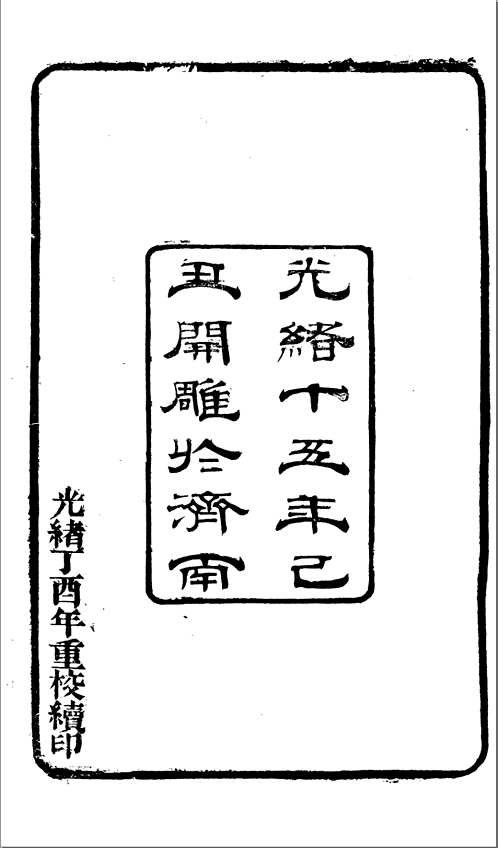 光緒十五年己
丑開雕於濟南
光緒丁酉年重校續印